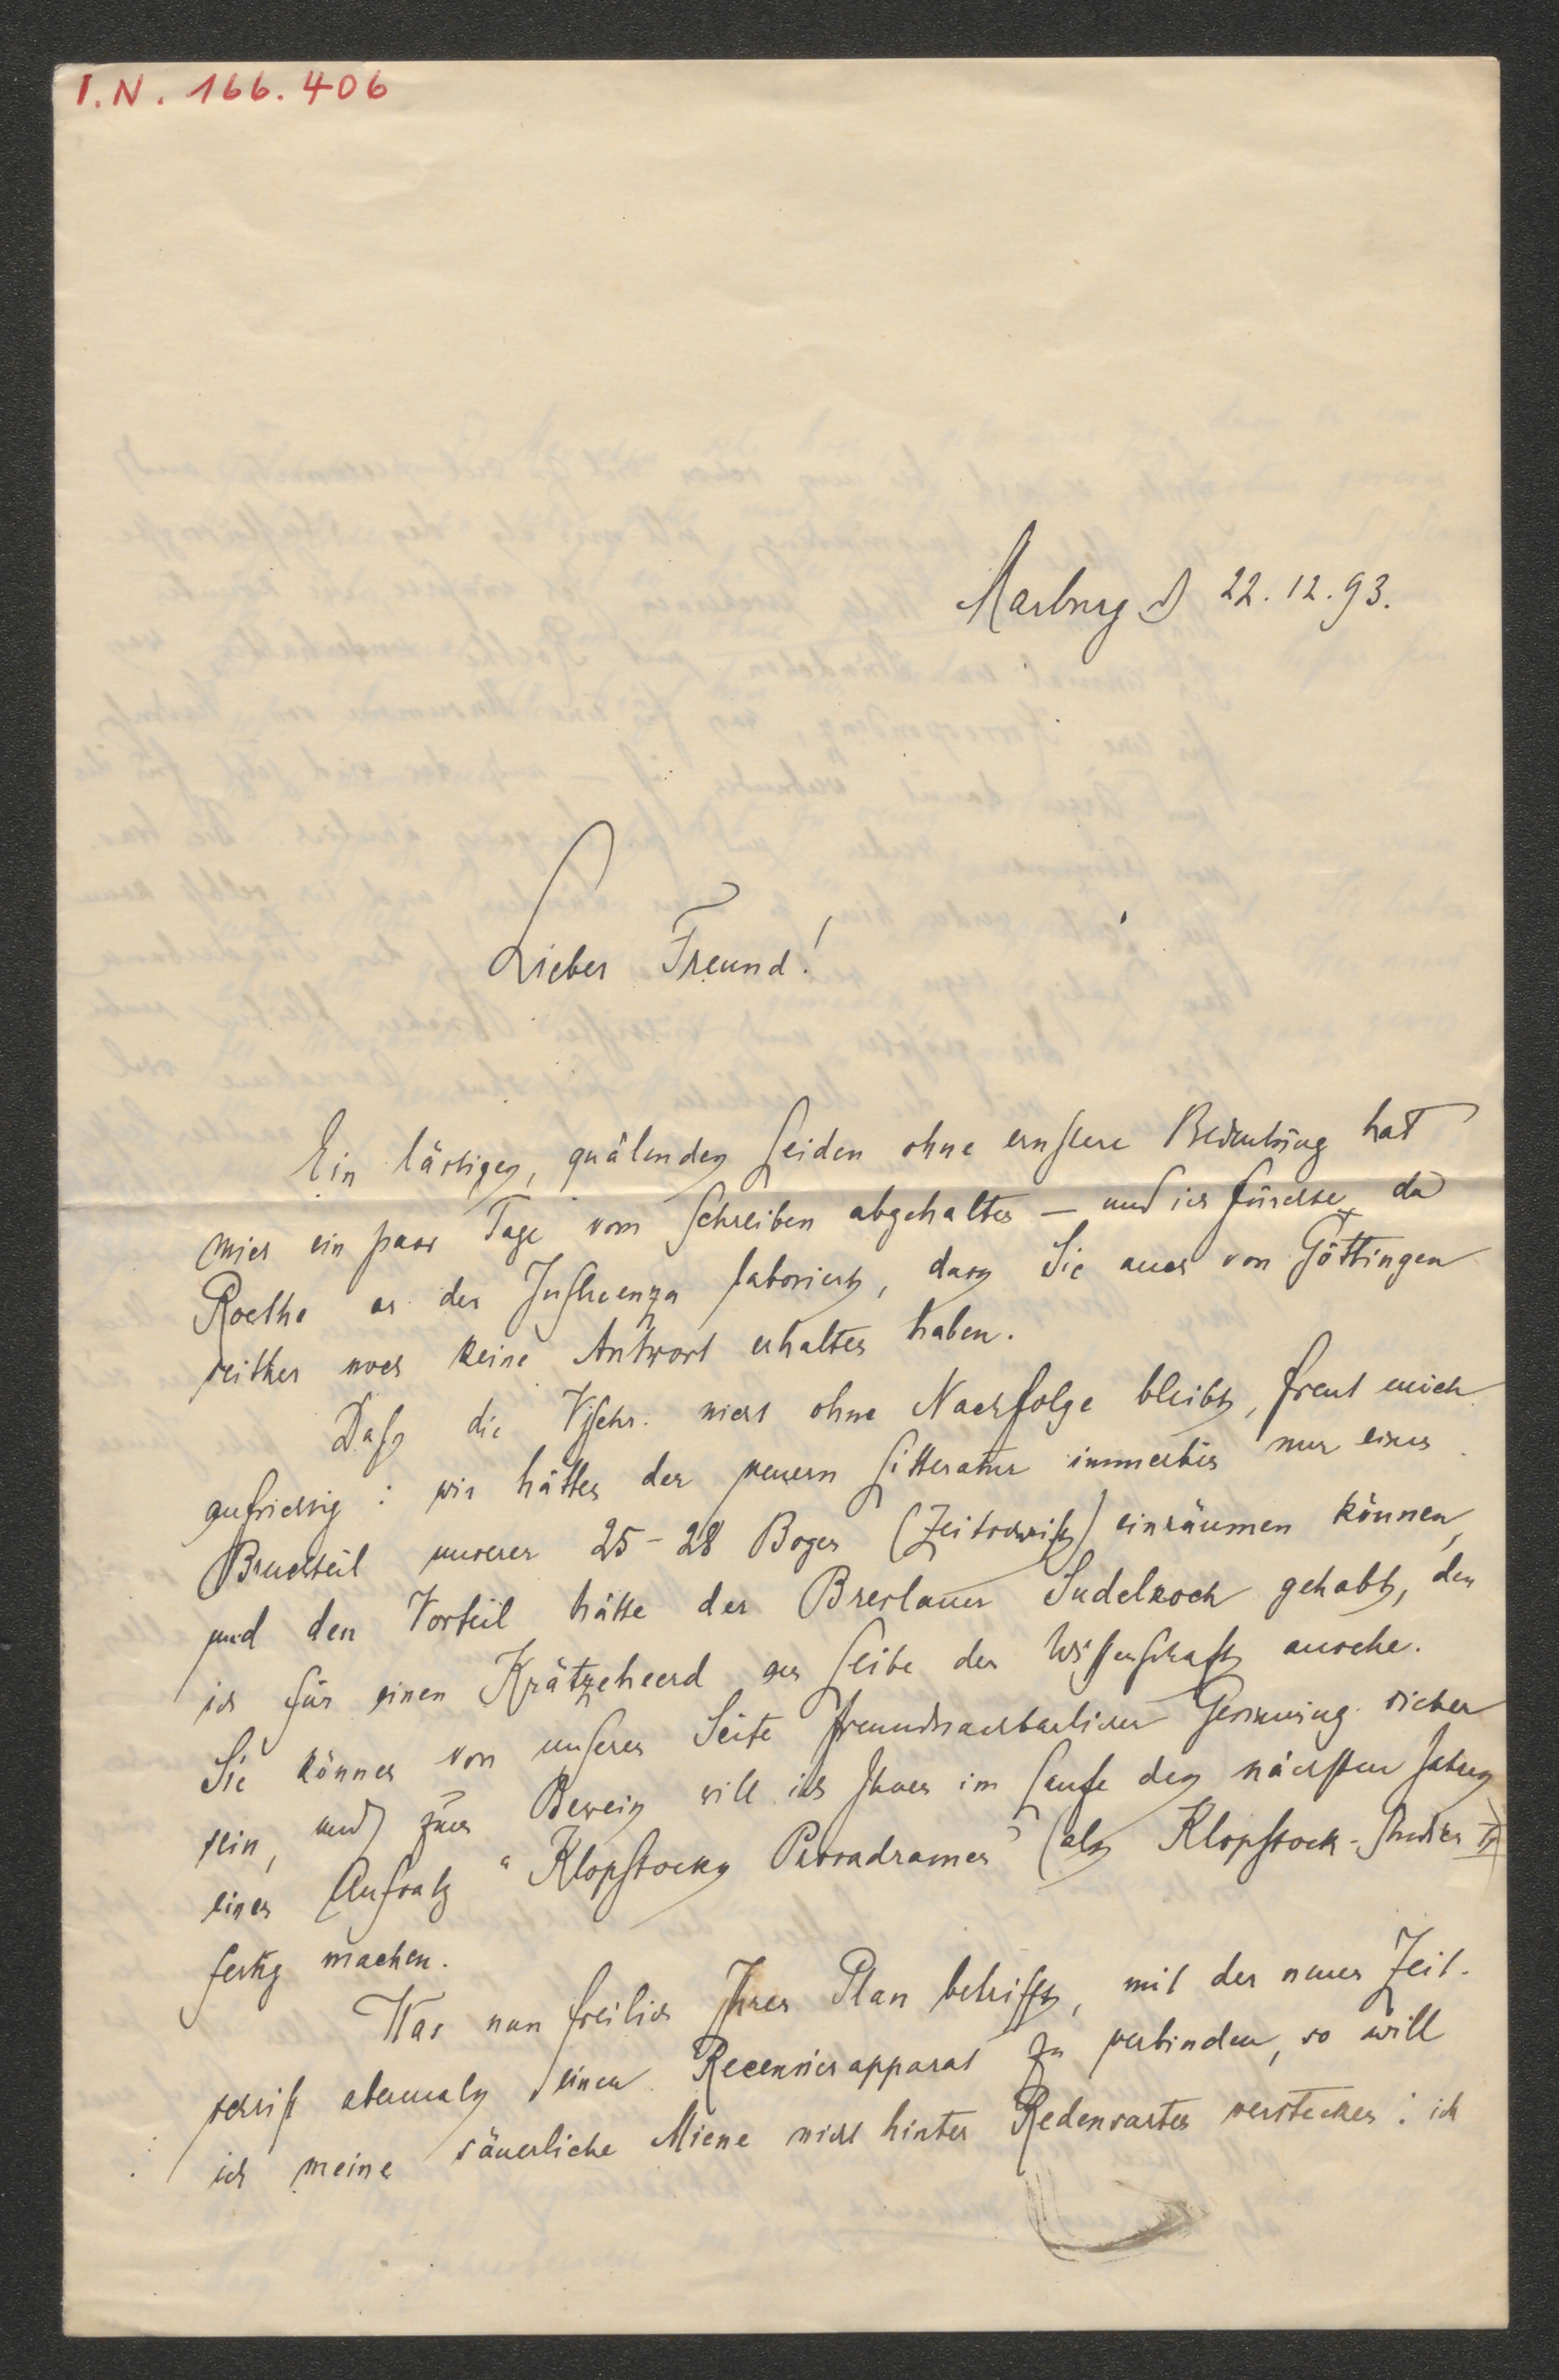 I.N. 166.406
Marburg d 22.12.93.
Lieber Freund!
Ein lästiges, quälendes Leiden ohne ernstere Bedeutung hat
mich ein paar Tage vom Schreiben abgehalten – und ich fürchte, da
Roethe an der Influenza laboriert, dass Sie auch von Göttingen
seither noch keine Antwort erhalten haben.
Dass die Vjschr. nicht ohne Nachfolge bleibt, freut mich
aufrichtig: wir hätten der neuern Litteratur immerhin nur einen
Bruchteil unserer 25–28 Bogen (Zeitschrift) einräumen können,
und den Vorteil hätte der Breslauer Sudelkoch gehabt, den
ich für einen Krätzeheerd am Leibe der Wissenschaft ansehe.
Sie können von unserer Seite freundnachbarlicher Gesinnung sicher
sein, und zum Beweis will ich Ihnen im Laufe des nächsten Jahres
einen Aufsatz "Klopstocks Prosadramen" (als Klopstock-Studien II)
fertig machen.
Was nun freilich Ihren Plan betrifft, mit der neuen Zeit-
schrift abermals einen Recensierapparat zu verbinden, so will
ich meine säuerliche Miene nicht hinter Redensarten verstecken: ich